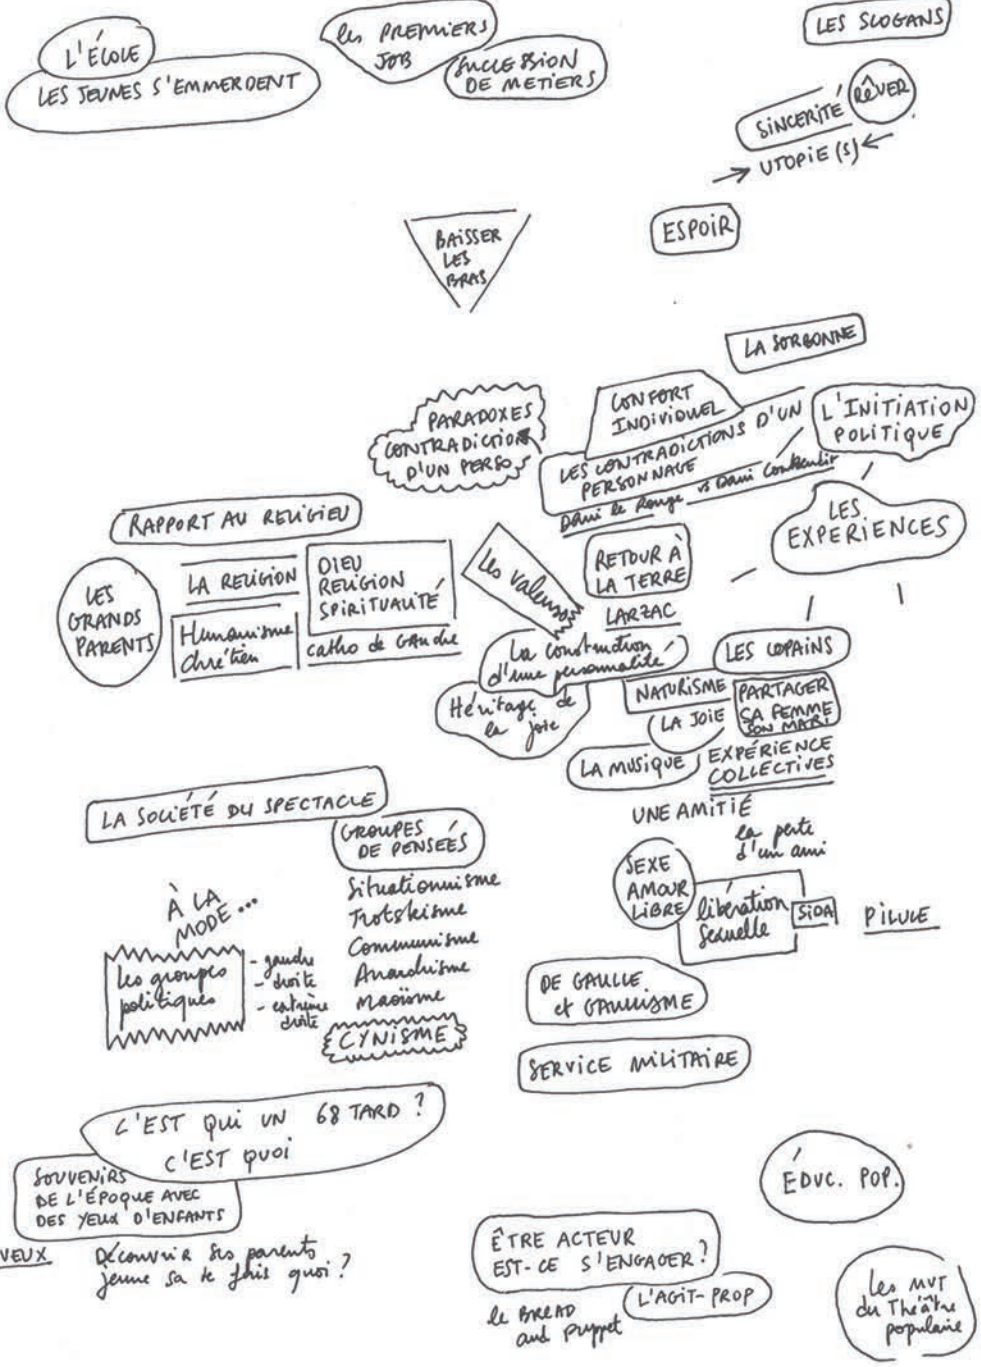 L'ÉCOLE
LES JEUNES S'EMMERDENT
les PREMIERS
JOB
SUCCESSION
DE METIERS
LES SLOGANS
RÊVER
SINCERITÉ
→ UTOPIE(S) ←
ESPOIR
BAISSER
LES
BRAS
LA SORBONNE
PARADOXES
CONTRADICTION
D'UN PERSO
CONFORT
INDIVIDUEL
LES CONTRADICTIONS D'UN
PERSONNAGE
Dani le Rouge vs Dani
L'INITIATION
POLITIQUE
LES
EXPERIENCES
RAPPORT AU RELIGIEU
LES
GRANDS
PARENTS
LA RELIGION
Humanisme
Chrétien
DIEU
RELIGION
SPIRITUALITÉ
catho de GAuche
Les valeurs
RETOUR À
LA TERRE
LARZAC
La construction
d'une personnalité
Héritage de
la joie
LES COPAINS
NATURISME
PARTAGER
SA FEMME
SON MARI
LA JOIE
LA MUSIQUE
EXPÉRIENCE
COLLECTIVES
UNE AMITIÉ
la perte
d'un ami
SEXE
AMOUR
LIBRE
libération
sexuelle
SIDA
PILULE
LA SOCIÉTÉ DU SPECTACLE
GROUPES
DE PENSEÉS
Situationnisme
Trotskisme
Communisme
Anarchisme
Maoïsme
CYNISME
À LA
MODE...
les groupes
politiques
- gauche
- droite
- extrême
droite
DE GAULLE
et GAULLISME
SERVICE MILITAIRE
C'EST QUI UN 68 TARD ?
C'EST QUOI
SOUVENIRS
DE L'ÉPOQUE AVEC
DES YEUX D'ENFANTS
VEUX
Découvrir ses parents
jeune sa te fais quoi ?
ÉDUC. POP.
ÊTRE ACTEUR
EST-CE S'ENGAGER ?
L'AGIT-PROP
le BREAD
and puppet
Les MVT
du Théâtre
populaire